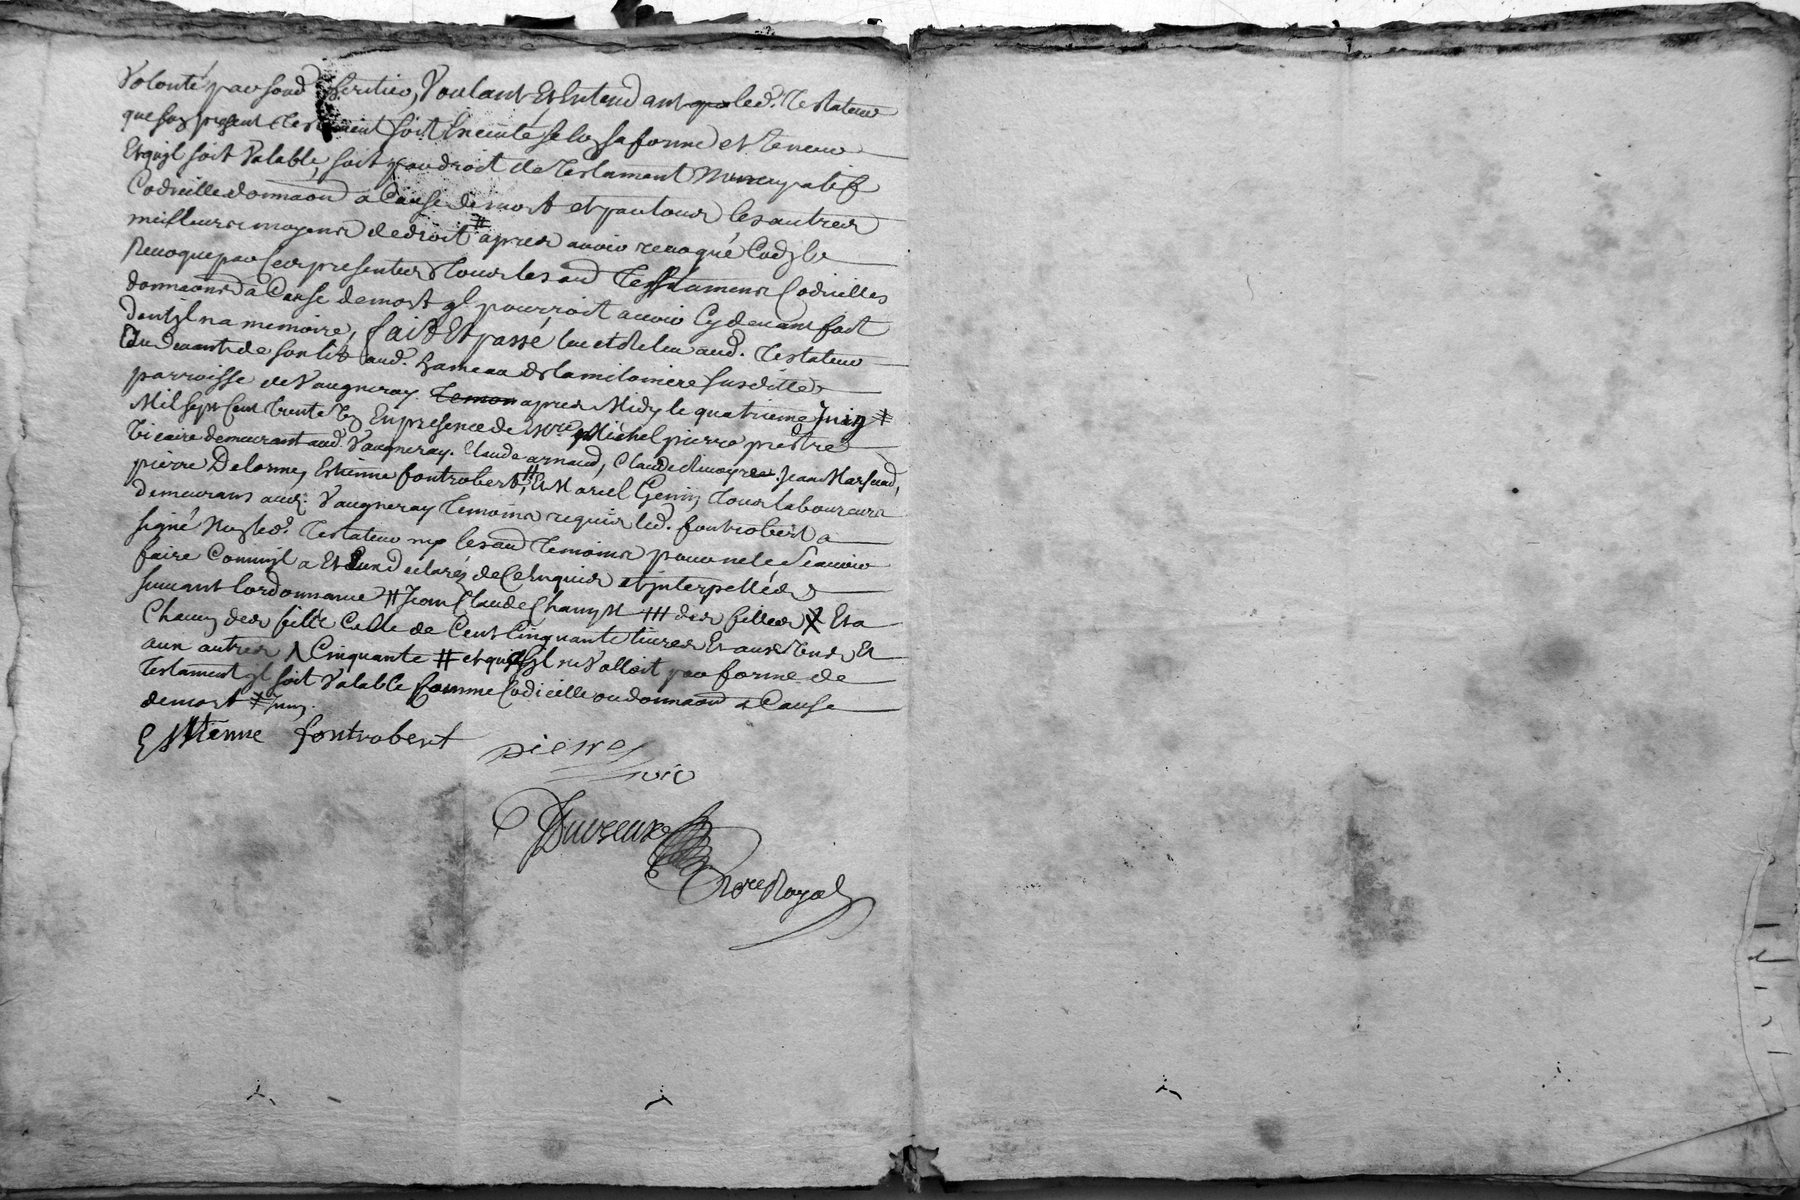 Volonté par sond heritier, Voulant Et Entendant que led. Testateur
que son present Testament soit Executé selon sa forme et teneur
Et quil soit Valable, soit par droit de testament Nuncupatif
Codicille donnaon a Cause de mort et par tous les autres
meilleurs moyens de droit # apres avoir revoqué Co͠e il
Revoque par Ces presentes Tous les aud Testaments Codicilles
donnaons a Cause de mort yl pourroit avoir Cy devant fait
dont yl na memoire, fait Et passé lu et relu aud. Testateur
Au devant de son lit aud. hameau de la miloniere susditte
parroisse de Vaugneray Temon apres Midy le quatrieme Juin #
Mil sept Cent Trente En presence de Mre Michel pierre prestre
Vicaire demeurant aud. Vaugneray. Claude arnaud, Claude Jean
pierre Delorme, Estienne fontrobert, # Et Genin Tous laboureurs
demeurans aud. Vaugneray Temoins requis led. fontrobert a
signé Non led. Testateur ny les aud Temoins pour ne le Scavoir
faire Comme yl a Et Eun declarés de Ce Enquis et interpellés
suivant lordonnance # Jean Claude # des filles X Et a
Chacun des filles Celle de Cent Cinquante livres Et aux Et
aux autres Cinquante # et que sil ne Valloit par forme de
Testament yl soit Valable Comme Codicille ou donnaon a Cause
de mort # Juin.
Esttienne fontrobert
pierre
vic
nore Royal